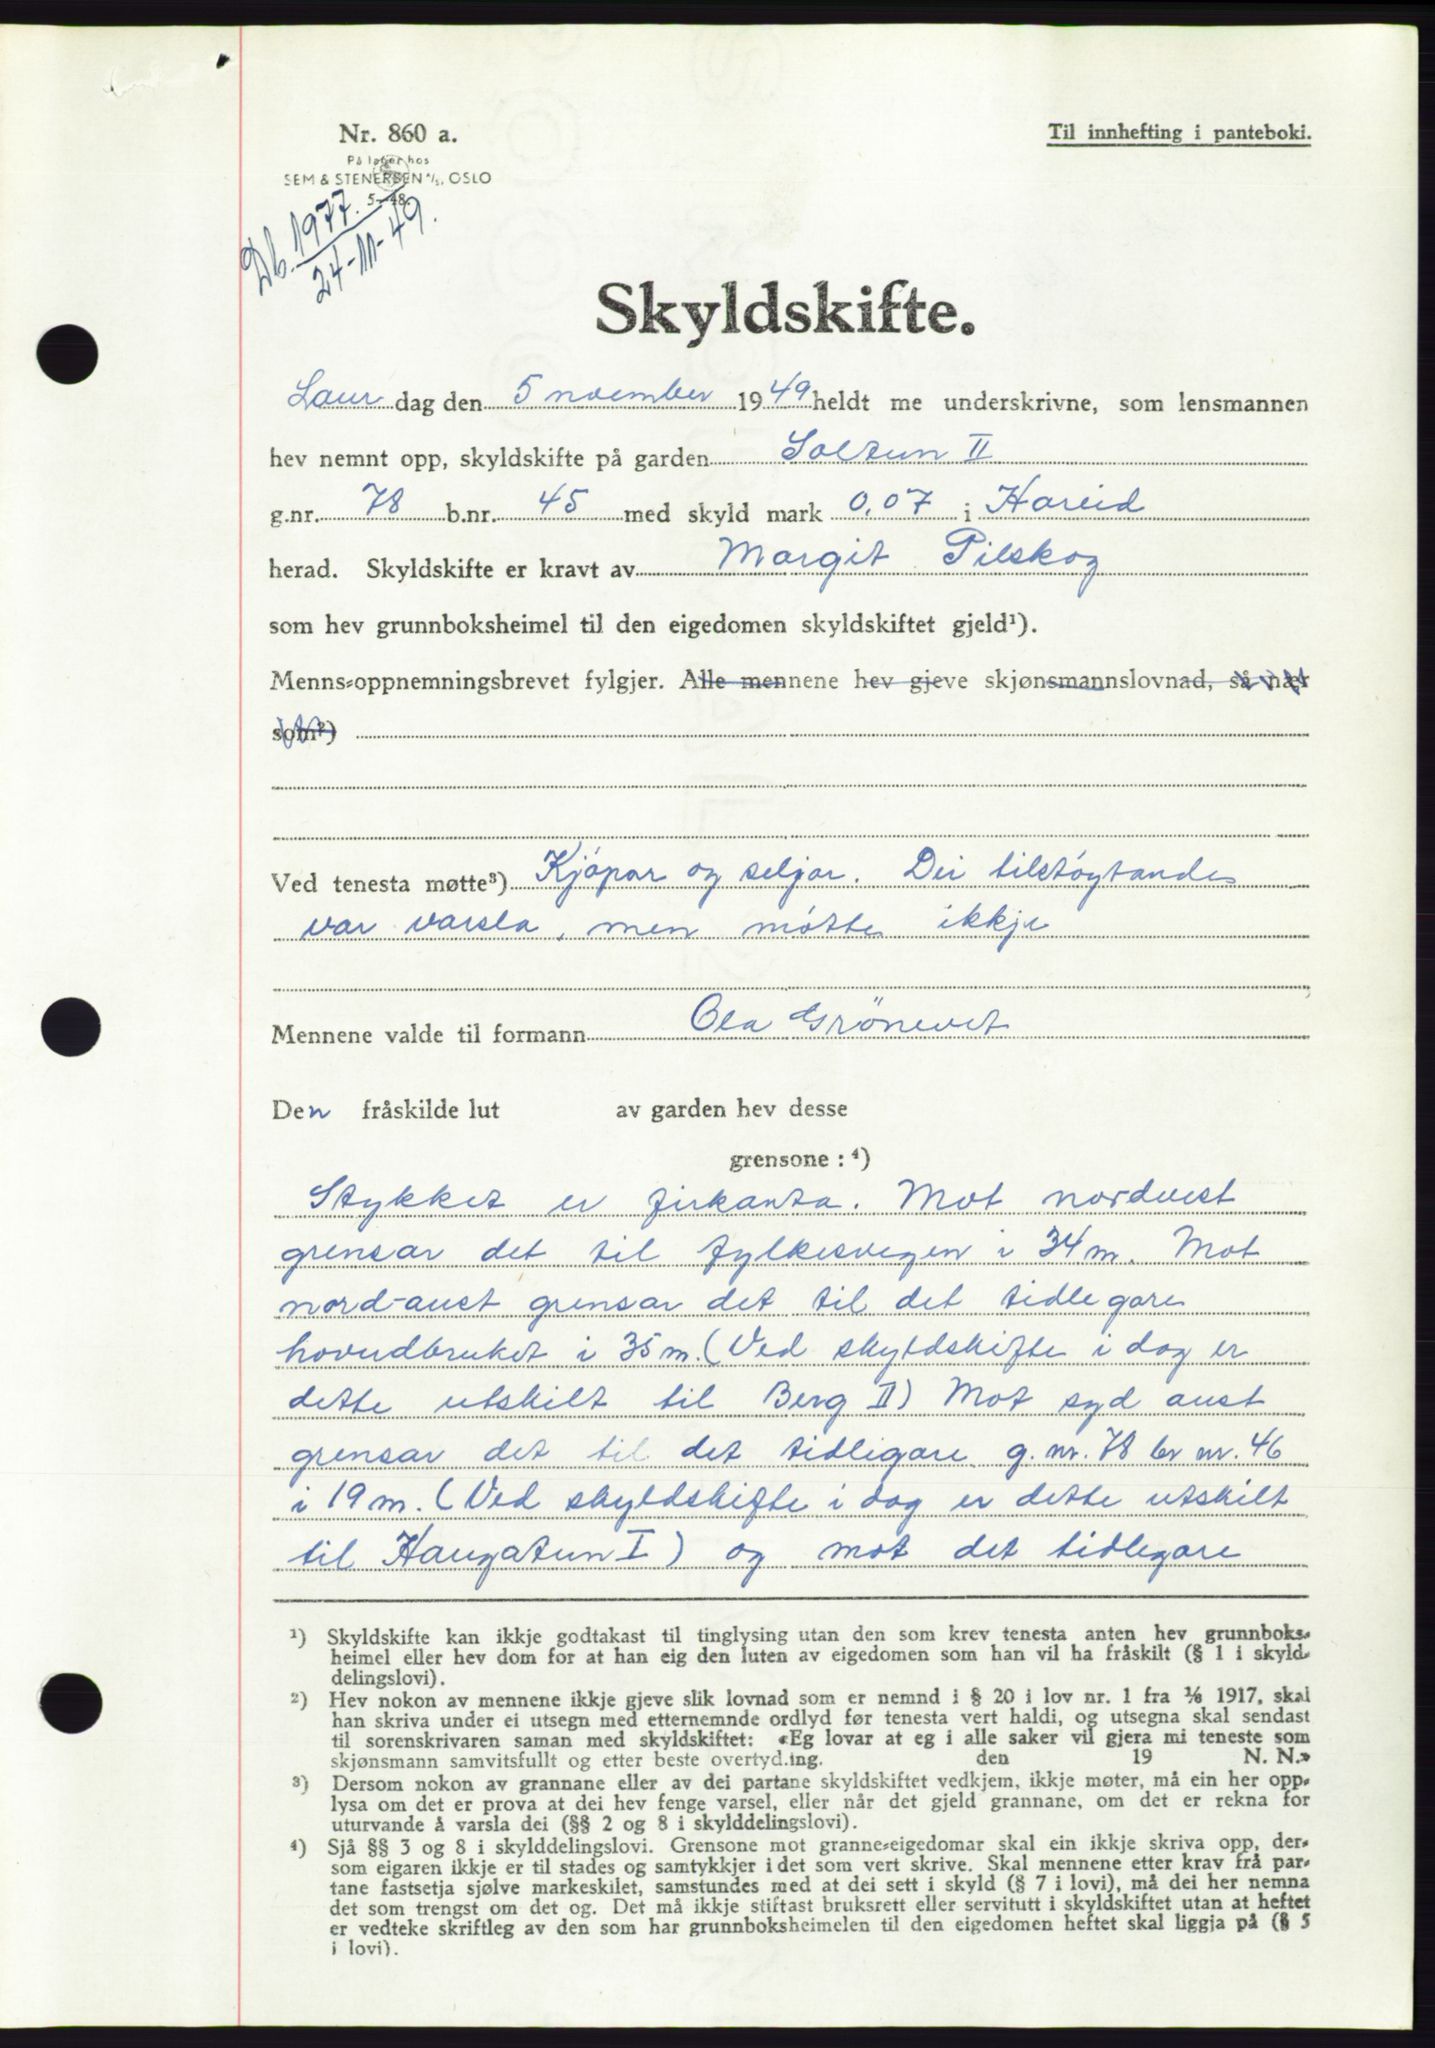 Nr. 860 a.
På lager hos
SEM & STENERSEN A/S, OSLO
5—48.
Til innhefting i panteboki.
Db. 1977.
24-11-49.
Skyldskifte.
Laur dag den 5 november 1949 heldt me underskrivne, som lensmannen
hev nemnt opp, skyldskifte på garden Soltun II
g.nr. 78 b.nr. 45 med skyld mark 0,07 i Hareid
herad. Skyldskifte er kravt av Margit Pilskog
som hev grunnboksheimel til den eigedomen skyldskiftet gjeld¹).
Menns-oppnemningsbrevet fylgjer. Alle mennene hev gjeve skjønsmannslovnad, så nær
som²)
Ved tenesta møtte³) Kjópar og seljar. Dei tilstóytande
var varsla, men møtte ikkje
Mennene valde til formann Ola Grönevet
Den fråskilde lut av garden hev desse
grensone : ⁴)
Stykket er firkanta. Mot nordvest
grensar det til fylkesvegen i 34 m. Mot
nord-aust grensar det til det tidlegare
hovudbruket i 35 m. (Ved skyldskifte i dag er
dette utskilt til Berg II) Mot syd aust
grensar det til det tidligare g. nr. 78 br nr. 46
i 19 m. (Ved skyldskifte i dag er dette utskilt
til Haugatun I) og mot det tidlegare
¹) Skyldskifte kan ikkje godtakast til tinglysing utan den som krev tenesta anten hev grunnboks-
heimel eller hev dom for at han eig den luten av eigedomen som han vil ha fråskilt (§ 1 i skyld-
delingslovi).
²) Hev nokon av mennene ikkje gjeve slik lovnad som er nemnd i § 20 i lov nr. 1 fra 1/6 1917, skal
han skriva under ei utsegn med etternemnde ordlyd før tenesta vert haldi, og utsegna skal sendast
til sorenskrivaren saman med skyldskiftet: «Eg lovar at eg i alle saker vil gjera mi teneste som
skjønsmann samvitsfullt og etter beste overtyd.ing. den 19 N. N.»
³) Dersom nokon av grannane eller av dei partane skyldskiftet vedkjem, ikkje møter, må ein her opp-
lysa om det er prova at dei hev fenge varsel, eller når det gjeld grannane, om det er rekna for
uturvande å varsla dei (§§ 2 og 8 i skylddelingslovi).
⁴) Sjå §§ 3 og 8 i skylddelingslovi. Grensone mot granne-eigedomar skal ein ikkje skriva opp, der-
som eigaren ikkje er til stades og samtykkjer i det som vert skrive. Skal mennene etter krav frå par-
tane fastsetja sjølve markeskilet, samstundes med at dei sett i skyld (§ 7 i lovi), må dei her nemna
det som trengst om det og. Det må ikkje stiftast bruksrett eller servitutt i skyldskiftet utan at heftet
er vedteke skriftleg av den som har grunnboksheimelen til den eigedomen heftet skal liggja på (§ 5
i lovi).